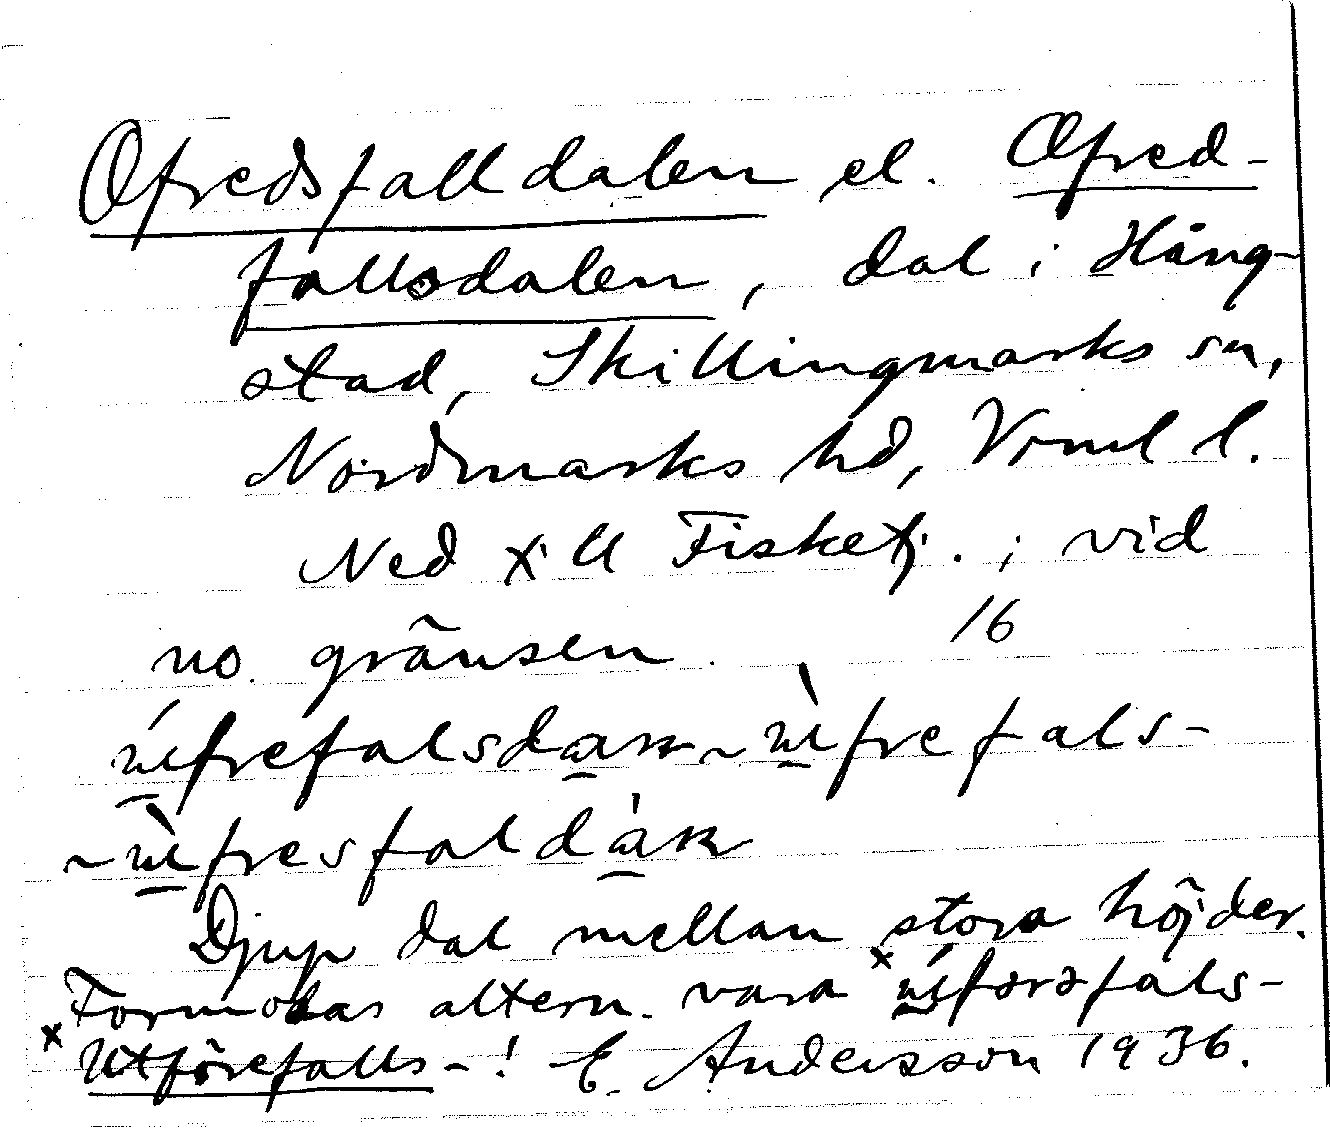 Ofredsfalldalen el. Ofred-
fallsdalen, dal i Häng-
stad, Skillingmarks sn,
Nordmarks hd, Vrml l.
Ned till Fisketj. ; vid
no. gränsen 16
frefalsdan ~ frefals-
~ fresfaldan
Djup dal mellan stora höjder.
Formodas altern. vara × fərəfals-
× Utförefalls- ! E. Andersson 1936.